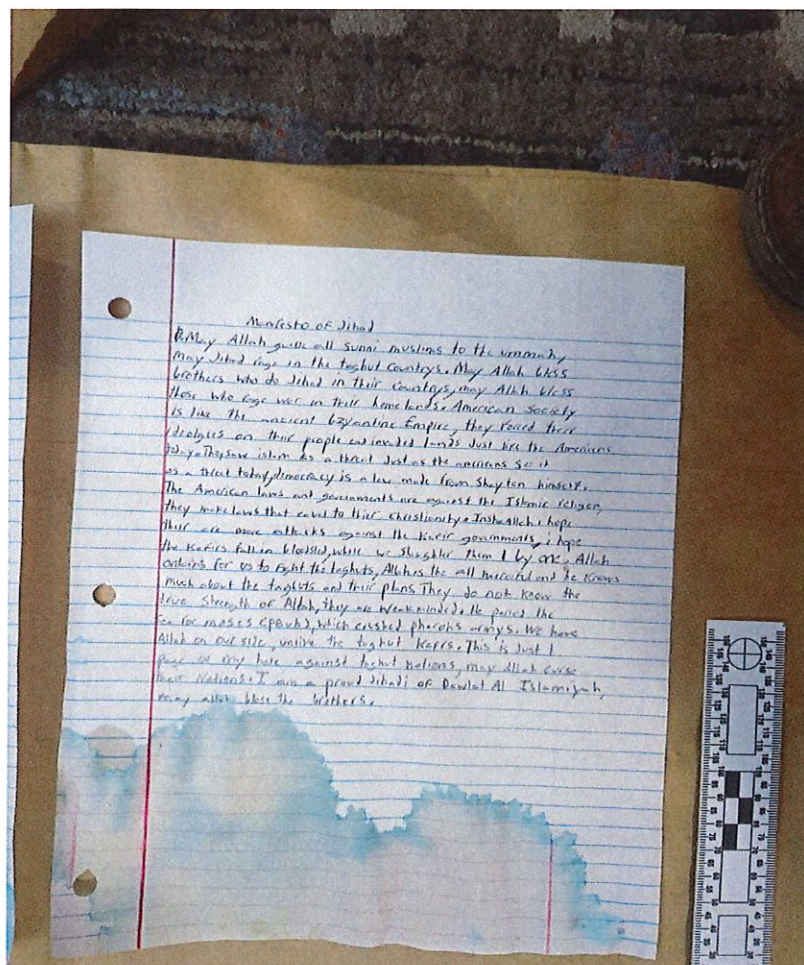 Manifesto of Jihad
May Allah guide all sunni muslims to the ummah,
may Jihad rage in the taghut countrys. May Allah bless
brothers who do Jihad in their countrys, may Allah bless
those who rage war in their homelands. American society
is like the ancient byzantine Empire, they forced their
ideologies on their people and invaded lands Just like the Americans
today. They saw islam as a threat Just as the americans see it
as a threat today, democracy is a law made from Shaytan himself.
The American laws and governments are against the Islamic religion,
they make laws that to thier christianity. InshaAllah i hope
their are more attacks against the Kafir governments, i hope
the Kafirs fall in bloodshed, while we slaughter them 1 by one, Allah
ordains for us to fight the taghuts, Allah is the all merciful and he knows
much about the taghuts and their plans They do not know the
true strength of Allah, they are weak minded. He parted the
sea for moses (pbuh), which crushed armys. We have
Allah on our side, unlike the taghut Kafirs. This is Just 1
page of my hate against taghut nations, may Allah curse
their nations. I am a proud Jihadi of Dawlat Al Islamiyah,
may allah bless the brothers.